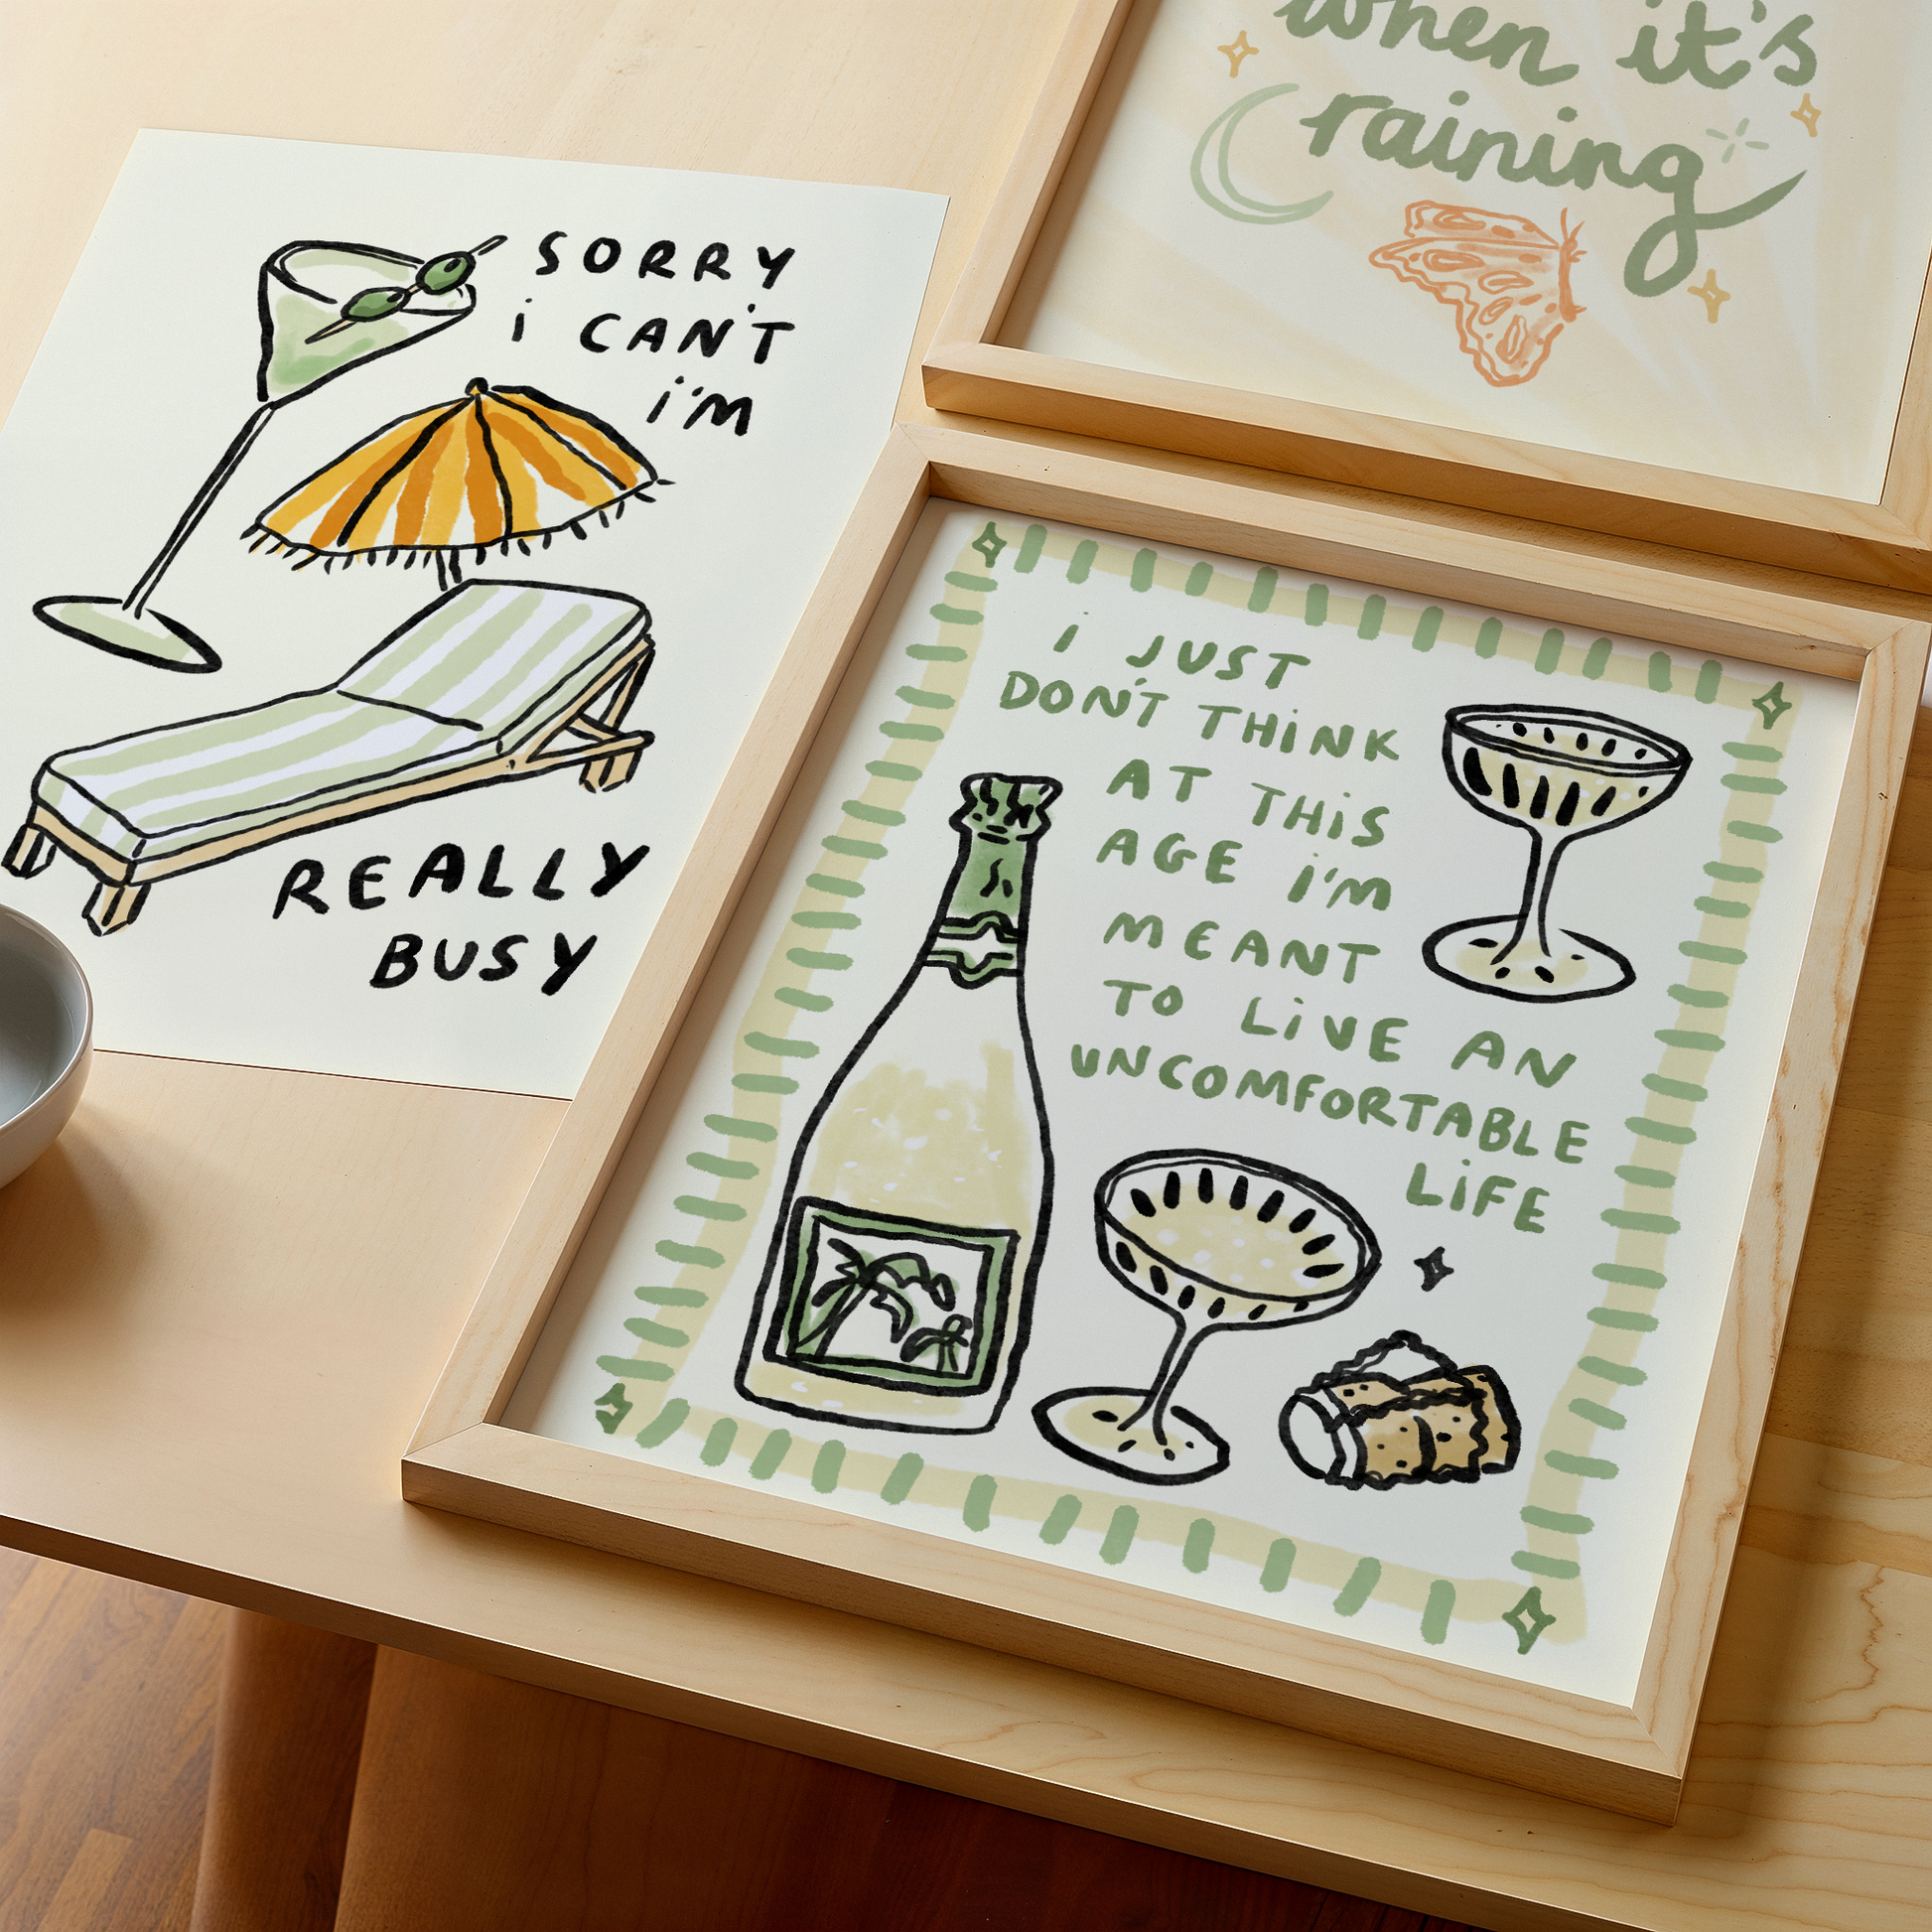 SORRY
i CAN'T
i'M
REALLY
BUSY
when it's
raining
i JUST
DON'T THiNK
AT THiS
AGE i'M
MEANT
TO LiVE AN
UNCOMFORTABLE
LiFE